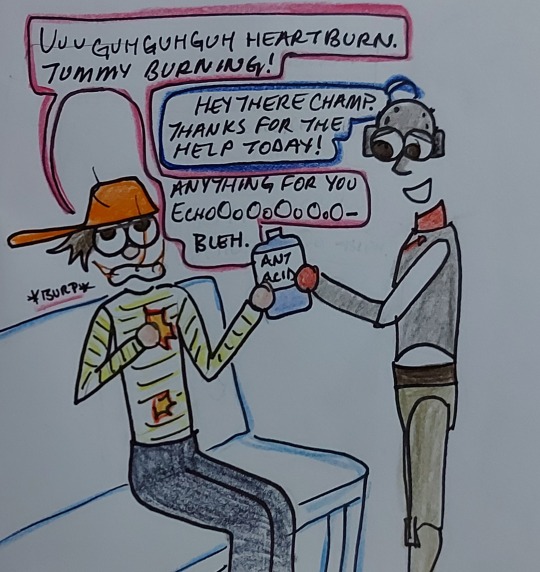 UUUGUHGUHGUH HEARTBURN.
TUMMY BURNING!
HEY THERE CHAMP.
THANKS FOR THE
HELP TODAY!
ANYTHING FOR YOU
ECHOOoOoOoOo.o–
BLEH.
ANT
ACID
*BURP*